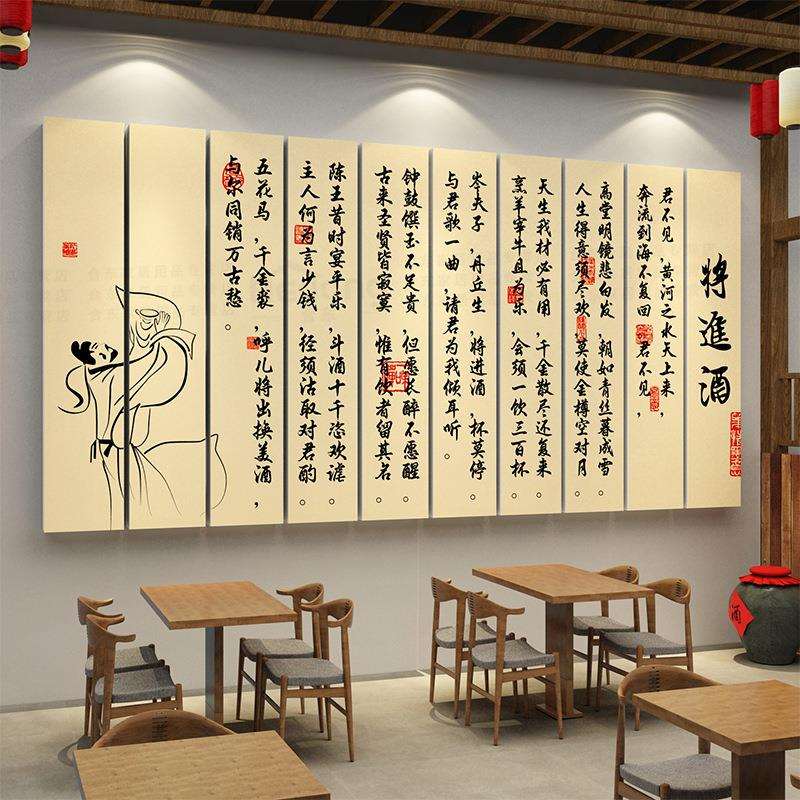 将進酒
君不见,黄河之水天上来,
奔流到海不复回。君不见,
高堂明镜悲白发,朝如青丝暮成雪。
人生得意须尽欢,莫使金樽空对月。
天生我材必有用,千金散尽还复来。
烹羊宰牛且为乐,会须一饮三百杯。
岑夫子,丹丘生,将进酒,杯莫停。
与君歌一曲,请君为我倾耳听。
钟鼓馔玉不足贵,但愿长醉不愿醒。
古来圣贤皆寂寞,惟有饮者留其名。
陈王昔时宴平乐,斗酒十千恣欢谑。
主人何为言少钱,径须沽取对君酌。
五花马,千金裘,呼儿将出换美酒,
与尔同销万古愁。
酒